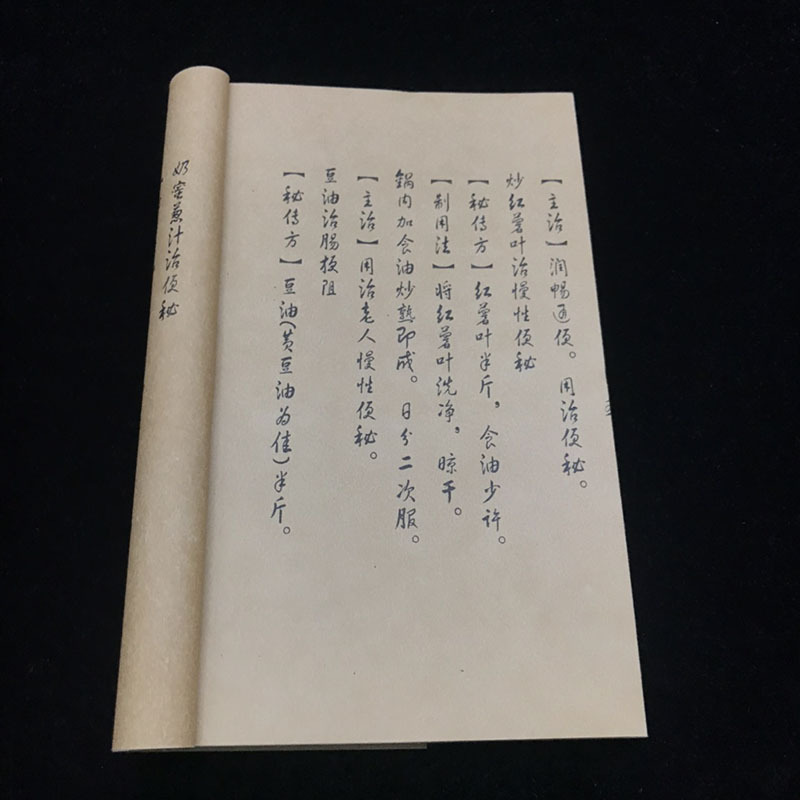 【主治】润畅通便。用治便秘。
炒红薯叶治慢性便秘
【秘传方】红薯叶半斤，食油少许。
【制用法】将红薯叶洗净，晾干。
锅内加食油炒熟即成。日分二次服。
【主治】用治老人慢性便秘。
豆油治肠梗阻
【秘传方】豆油(黄豆油为佳)半斤。
奶蜜葱汁治便秘